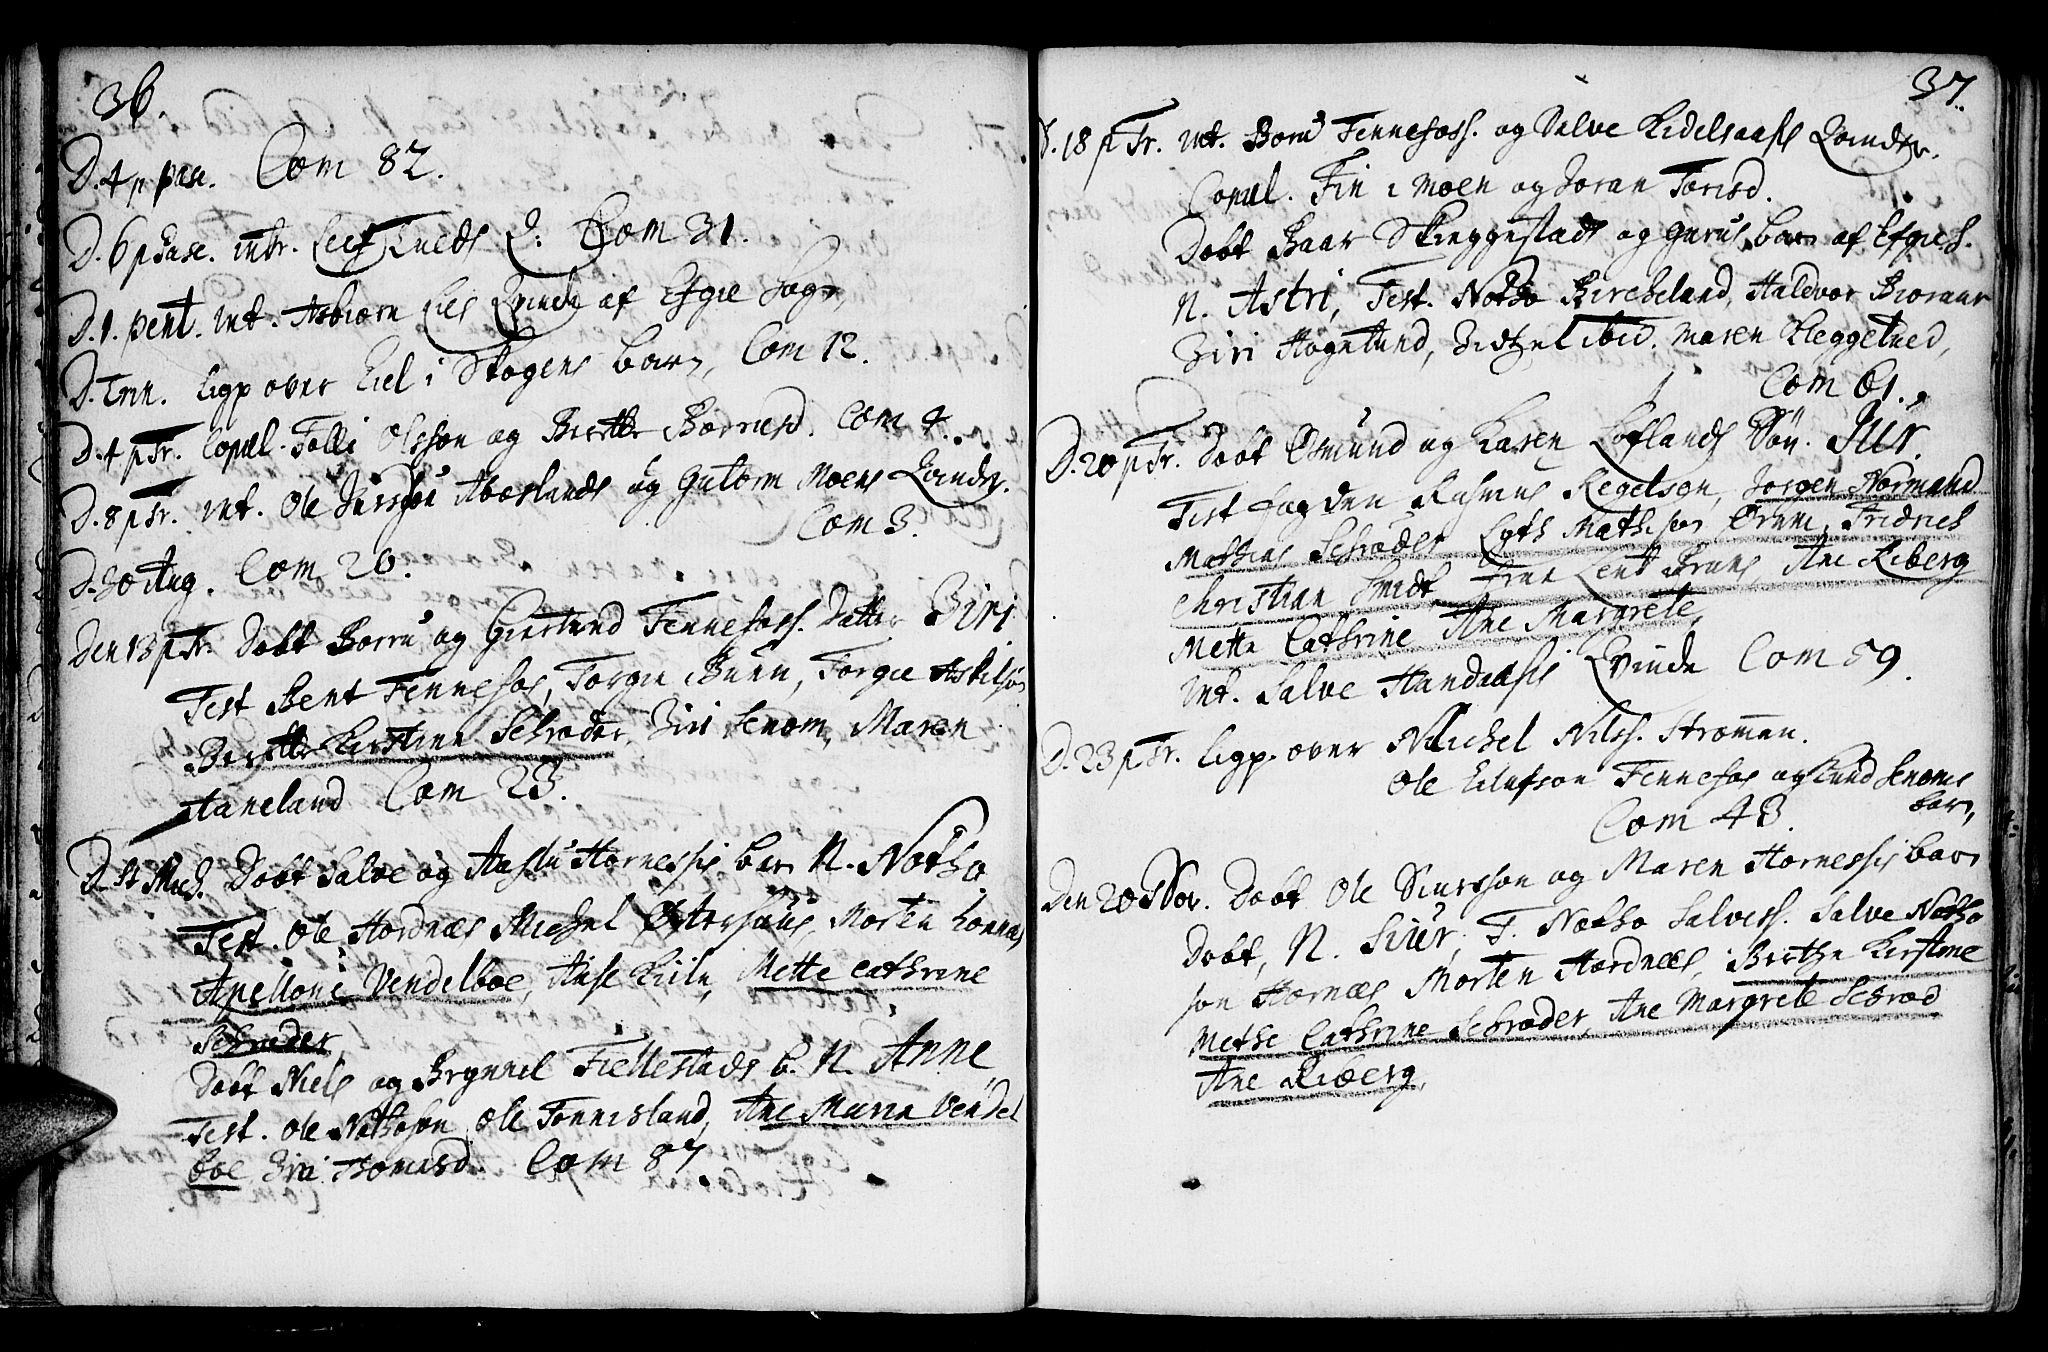 36.
D. 4 p pasc. Com 82.
D. 6 p Pasc. intr. Leef Tueds Q. Com 31.
D. 1. pent. int. Asbiørn Lies Qvinde af Efgie Sogn,
D. Trin. ligp over Kiel i Skogens barn, Com 12.
D. 4 p Tr. Copul. Folli Olsson og Berthe d. Com 4.
D. 8 p Tr. int. Ole og Gutorm Moens Qvinder.
Com 3.
D. 30 Aug. Com 26.
Den 13 p Tr. Døbt Børru og Giertrud Fennefoss. Datter Siri
Test Bent Fennefos, Torgie Bunn, Torgie Askilsøn
Berthe Kirstine Schrøder, Siri Senom, Maren
Haneland Com 23.
D. St Mich. Døbt Salve og Aaslu Hornessis barn N. Notho
Test. Ole Hordnæs Michel Østerhuus, Morten
Apellone Vendelboe, Aase Kiile, Mette Cathrine
Schrøder
Døbt Niels og Brynnel Fiellestads b. N. Anne
Test. Ole Nothoson Ole Tønnesland, Ane Maria Vendel
boe Siri Thomesd. Com 87.
37.
D. 18 p Tr. int. Børu Fennefoss. og Salve Kedelsaasis Qvinder.
Copul. Fin i Moen og Joran Torisd.
Døbt Baar Skieggestads og Gurus barn af Efgie S.
N. Astri, Test. Notho Bircheland, Haldvor
Siri Høgelund, ibid. Maren Kleggetued,
Com 61.
D. 20 p Tr. Døbt Osmund og Karen Loflands Søn. Siur.
Test Fogden Rasmus Regelson, Jørgen Normand
Mathias Schrøder Mathison Fridrich
Christian Smidt Ane Reberg
Mette Cathrine Ane Margrete,
int. Salve Handaasis Qvinde Com 59.
D. 23 p Tr. ligp. over Michel Nilss. Strømmen.
Ole Eilufson Fennefos og Knud Senoms
barn,
Com 43.
Den 20 Nov. Døbt Ole Siursson og Maren Hornessis barn
Døbt, N. Siur, T. Notho Salvess. Salve Notho
son Hornæs Morten Hordnæs, Berthe Kirstine
Methe Cathrine Schrøder, Ane Margrete Schrød
Ane Riberg.